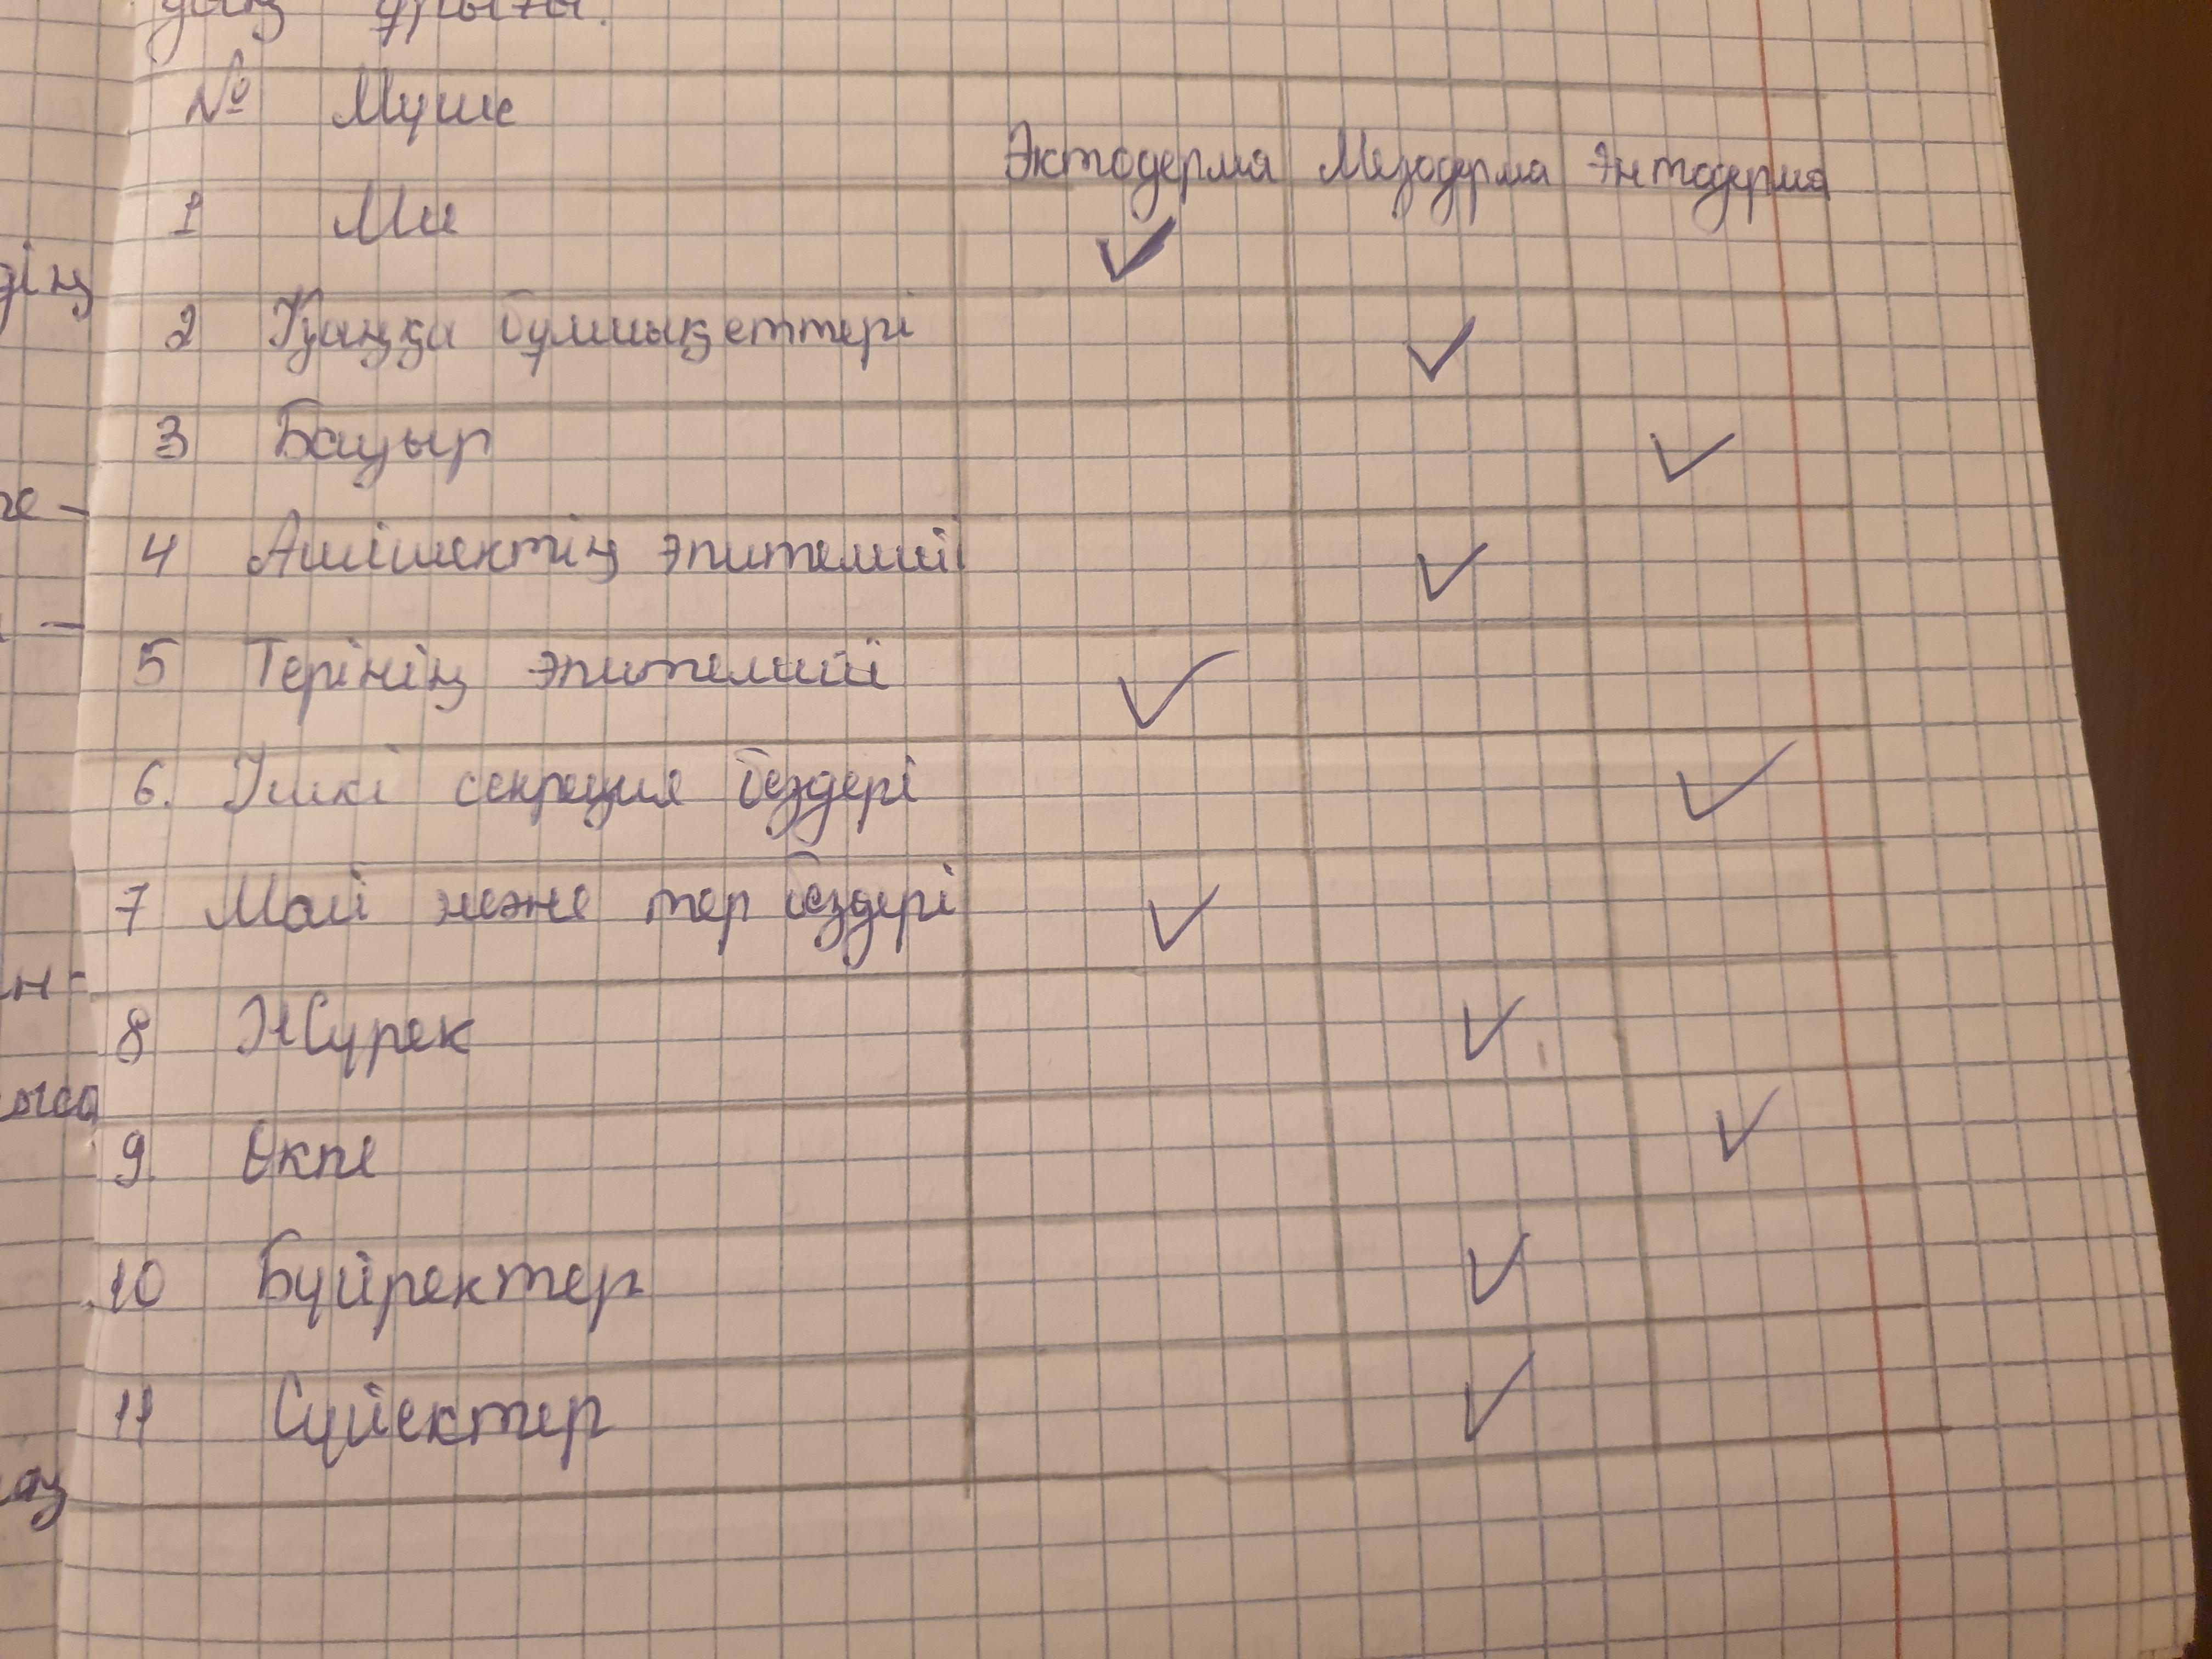 № Мүше Эктодерма Мезодерма Энтодерма
1 Ми ✓
2 Қаңқа бұлшықеттері ✓
3 Бауыр ✓
4 Ашішектің эпителийі ✓
5 Терінің эпителийі ✓
6. Ішкі секреция бездері ✓
7 Май және тер бездері ✓
8 Жүрек ✓
9. Өкпе ✓
10 Бүйректер ✓
11 Сүйектер ✓